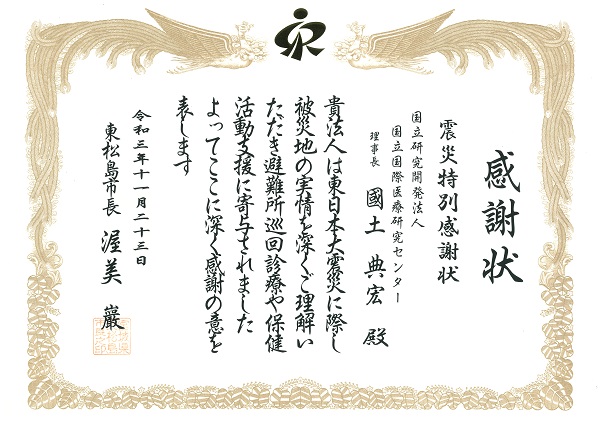 感謝状
震災特別感謝状
国立研究開発法人
国立国際医療研究センター
理事長 國土典宏 殿
貴法人は東日本大震災に際し
被災地の実情を深くご理解い
ただき避難所巡回診療や保健
活動支援に寄与されました
よってここに深く感謝の意を
表します
令和三年十一月二十三日
東松島市長 渥美 巖